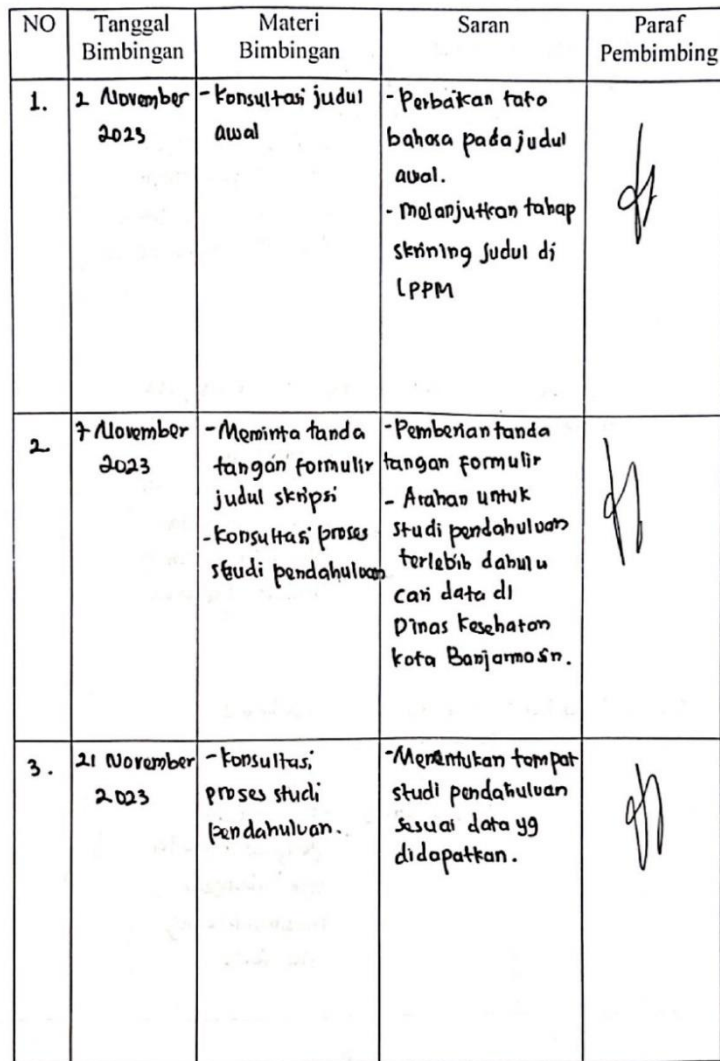 NO
Tanggal
Bimbingan
Materi
Bimbingan
Saran
Paraf
Pembimbing
1.
2 November
2023
- Konsultasi judul
awal
- Perbaikan tata
bahasa pada judul
awal.
- Melanjutkan tahap
skrining judul di
LPPM
2
7 November
2023
- Meminta tanda
tangan formulir
judul skripsi
- Konsultasi proses
studi pendahuluan
- Pemberian tanda
tangan formulir
- Arahan untuk
studi pendahuluan
terlebih dahulu
cari data di
Dinas Kesehatan
kota Banjarmasin.
3.
21 November
2023
- Konsultasi
proses studi
pendahuluan.
- Menentukan tempat
studi pendahuluan
sesuai data yg
didapatkan.